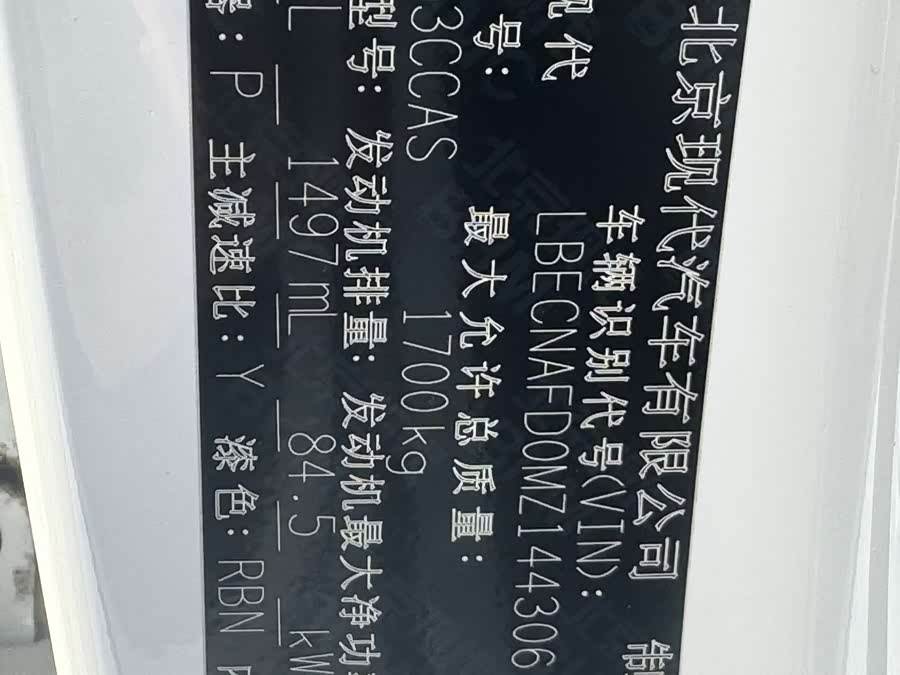 北京现代汽车有限公司 制
现代 车辆识别代号(VIN):
LBECNAFD0MZ144306
号: 最大允许总质量:
3CCAS 1700kg
型号: 发动机排量: 发动机最大净功
L 1497mL 84.5 kW
器: P 主减速比: Y 漆色: RBN